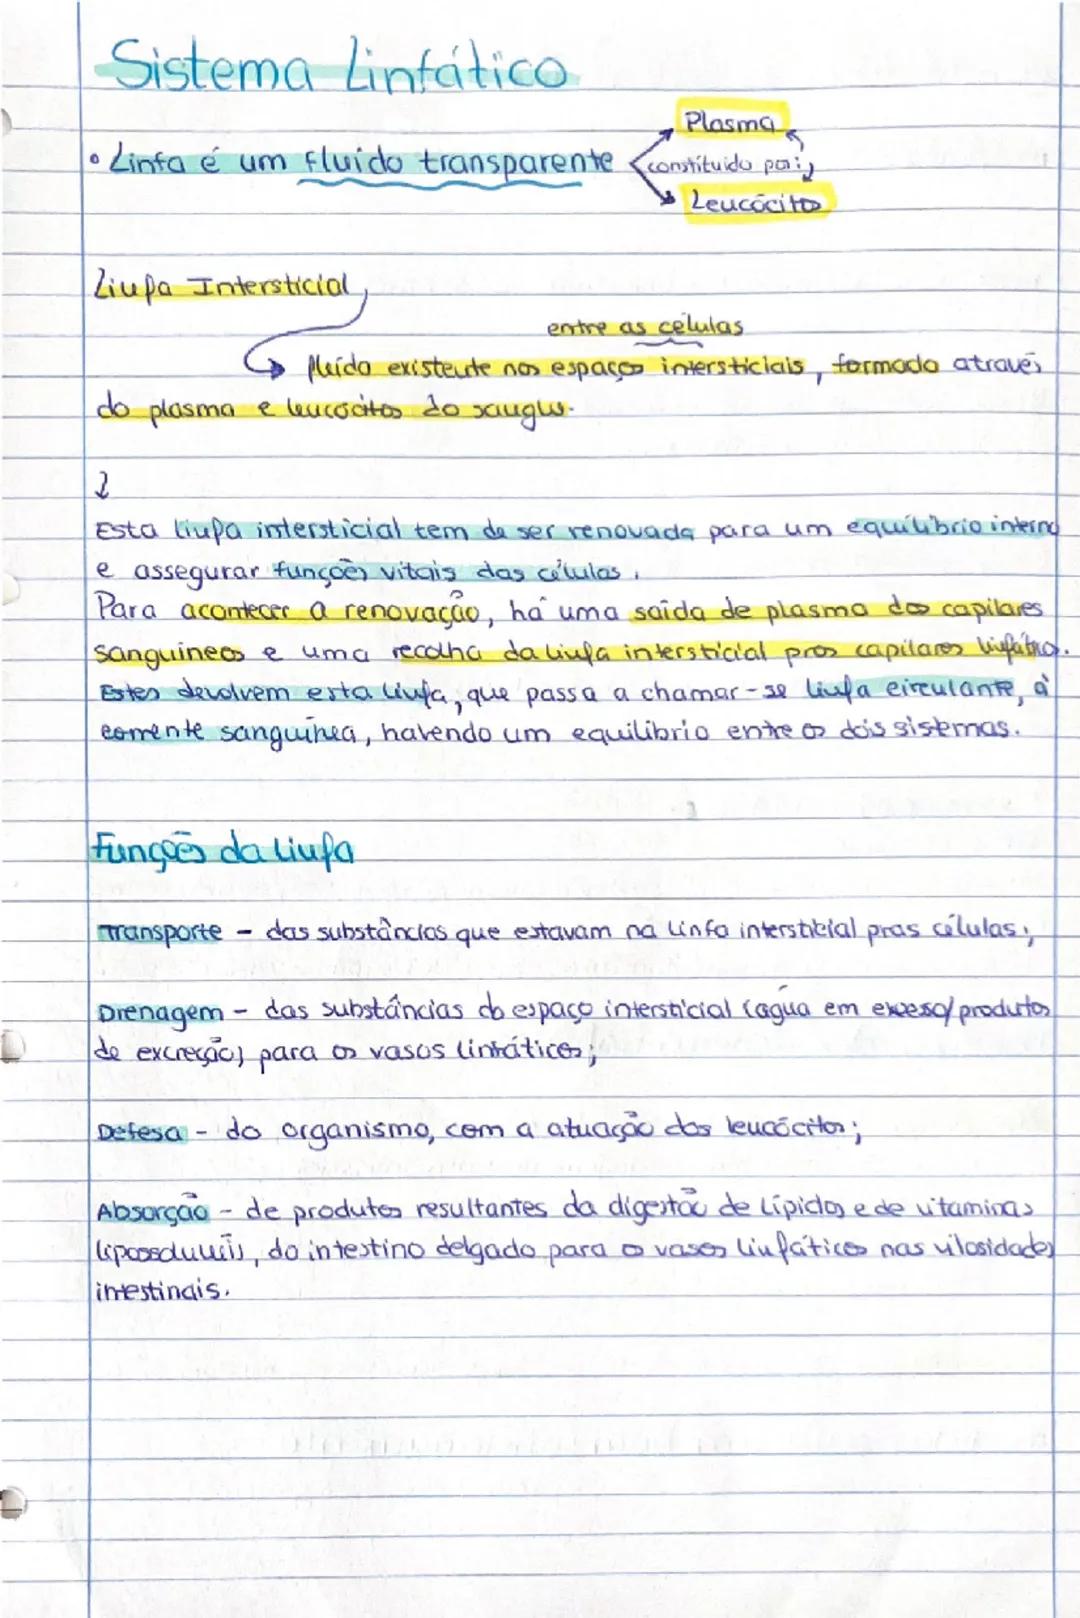 Sistema Linfático
Plasma
• Linfa é um fluido transparente
constituido por:
Leucócitos
Linfa Intersticial
entre as células
fluído existente nos espaços intersticiais, formado através
do plasma e leucócitos do sangue.
Esta linfa intersticial tem de ser renovada para um equilíbrio interno
e assegurar funções vitais das células.
Para acontecer a renovação, há uma saída de plasma dos capilares
sanguineos e uma recolha da linfa intersticial pros capilares linfáticos.
Estes devolvem esta linfa, que passa a chamar-se linfa circulante, à
corrente sanguínea, havendo um equilibrio entre os dois sistemas.
Funções da Linfa
Transporte - das substâncias que estavam na Linfa intersticial pras células;
Drenagem - das substâncias do espaço intersticial (agua em excesso/produtos
de excreção) para os vasos linfáticos;
Defesa - do organismo, com a atuação dos leucócitos;
Absorção - de produtos resultantes da digestão de Lípidos e de vitaminas
lipossoluveis, do intestino delgado para os vasos linfáticos nas vilosidades
intestinais.